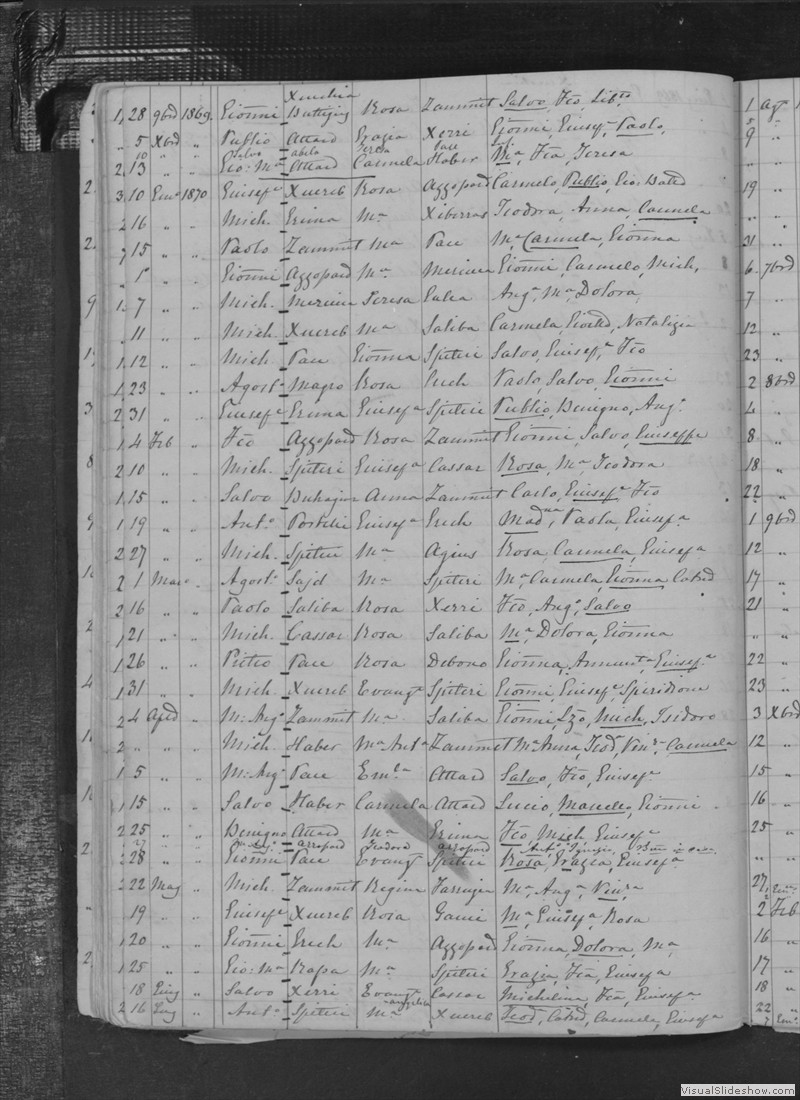 Xmihia
1, 28 9bre 1869 Gionni Buttigieg Rosa Zammit Salvo, Fco, Lib.ta
„ 5 Xbre „ Publio Attard Grazia Xerri Gionni, Giusep.e Paolo,
10 „ „ Salvo Abela Teresa Pace
2, 13 „ „ Gio: Ma Attard Carmela Haber Ma, Fca, Teresa
3, 10 Enn.o 1870 Giusef.e Xuereb Rosa Azzopard Carmelo, Publio, Gio: Batt.a
2 16 „ „ Mich. Grima Ma Xiberras Teodora, Anna, Carmela
, 15 „ „ Paolo Zammit Ma Pace Ma Carmela, Gionna
, 1° „ Gionni Azzopard Ma Mercieca Gionni, Carmelo, Mich,
1, 7 „ „ Mich. Mercieca Teresa Galea Ang.a, Ma, Dolora,
, 11 „ „ Mich. Xuereb Ma Saliba Carmela, Natalizia
1, 12 „ „ Mich. Pace Gionna Spiteri Salvo, Giusef.a Fco
1, 23 „ „ Agost.o Magro Rosa Grech Paolo, Salvo, Gionni
2, 31 „ „ Giusef.e Grima Giusef.a Spiteri Publio, Benigno, Ang.o
1 4 Feb „ Fco Azzopard Rosa Zammit Gionni, Salvo, Giuseppe
2 10 „ „ Mich. Spiteri Giusef.a Cassar Rosa, Ma, Teodora
1, 15 „ „ Salvo Buhagiar Anna Zammit Carlo, Giusef.e Fco
1, 19 „ „ Ant.o Portelli Giusef.a Grech Mad.na, Paola, Giusef.a
2 27 „ „ Mich. Spiteri Ma Agius Rosa, Carmela, Giusef.a
2 1 Marzo „ Agost.o Sajd Ma Spiteri Ma, Carmela, Gionna
2 16 „ „ Paolo Saliba Rosa Xerri Fco, Ang.o, Salvo
1, 21 „ „ Mich. Cassar Rosa Saliba Ma, Dolora, Gionna
1, 26 „ „ Pietro Pace Rosa Debono Gionna, Annunt.a Giusef.a
1, 31 „ „ Mich. Xuereb Evang.a Spiteri Gionni, Giusef.e, Spiridione
2 4 Apd „ M: Ang.o Zammit Ma Saliba Gionni, Lzo, Mich, Isidoro
2 „ „ Mich. Haber Ma Ant.a Zammit Ma Anna, Teod, Vin.a, Carmela
1 5 „ „ M: Ang.o Pace Em.la Attard Salvo, Fco, Giusef.e
1, 15 „ „ Salvo Haber Carmela Attard Lucio, Marcello, Gionni
2 25 „ „ Benigno Attard Ma Grima Fco, Mich, Giusef.e
27 „ Azzopard Teodora Azzopard
2 28 „ „ Gionni Pace Evang.a Spiteri Rosa, Grazia, Giusef.a
2 22 Mag „ Mich. Zammit Regina Farrugia Ma, Ang.a, Vin.a
19 „ „ Giusef.e Xuereb Rosa Gauci Ma, Giusef.a, Rosa
1, 20 „ „ Gionni Grech Ma Azzopard Gionna, Dolora, Ma,
1, 25 „ „ Gio: Ma Rapa Ma Spiteri Grazia, Fca, Giusef.a
18 Giug „ Salvo Xerri Evang.a Cassar Michelina, Fca, Giusef.a
2 16 Lug „ Ant.o Spiteri Ma Xuereb Teod, Carmela, Giusef.a
1 Ag.to
9
19
31
6 7brd
7
12
23
2 8brd
4
8
18
22
1 9brd
12
17
21
22
23
3 Xbrd
12
15
16
25
27
2 Feb
16
17
18
22
VisualSlideshow.com